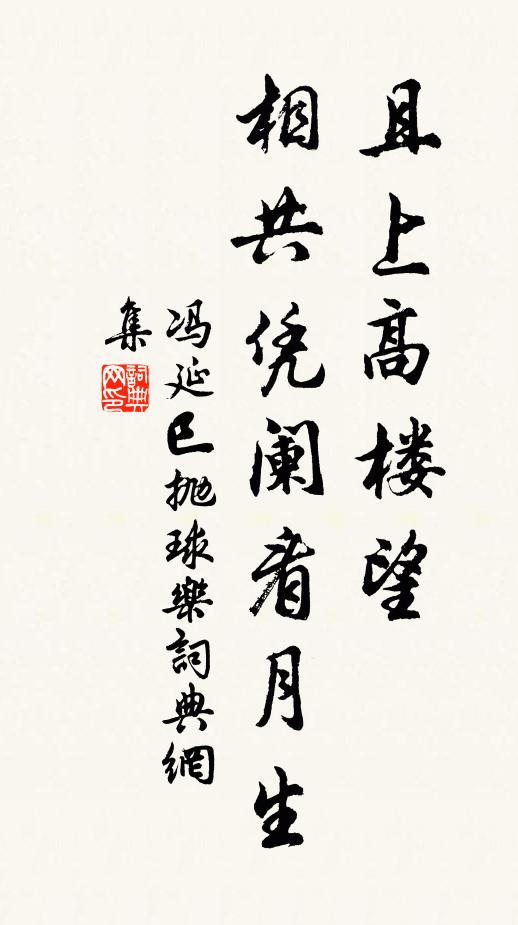 且上高楼望
相共凭阑看月生
冯延巳抛球樂詞典網
集
詞典网印